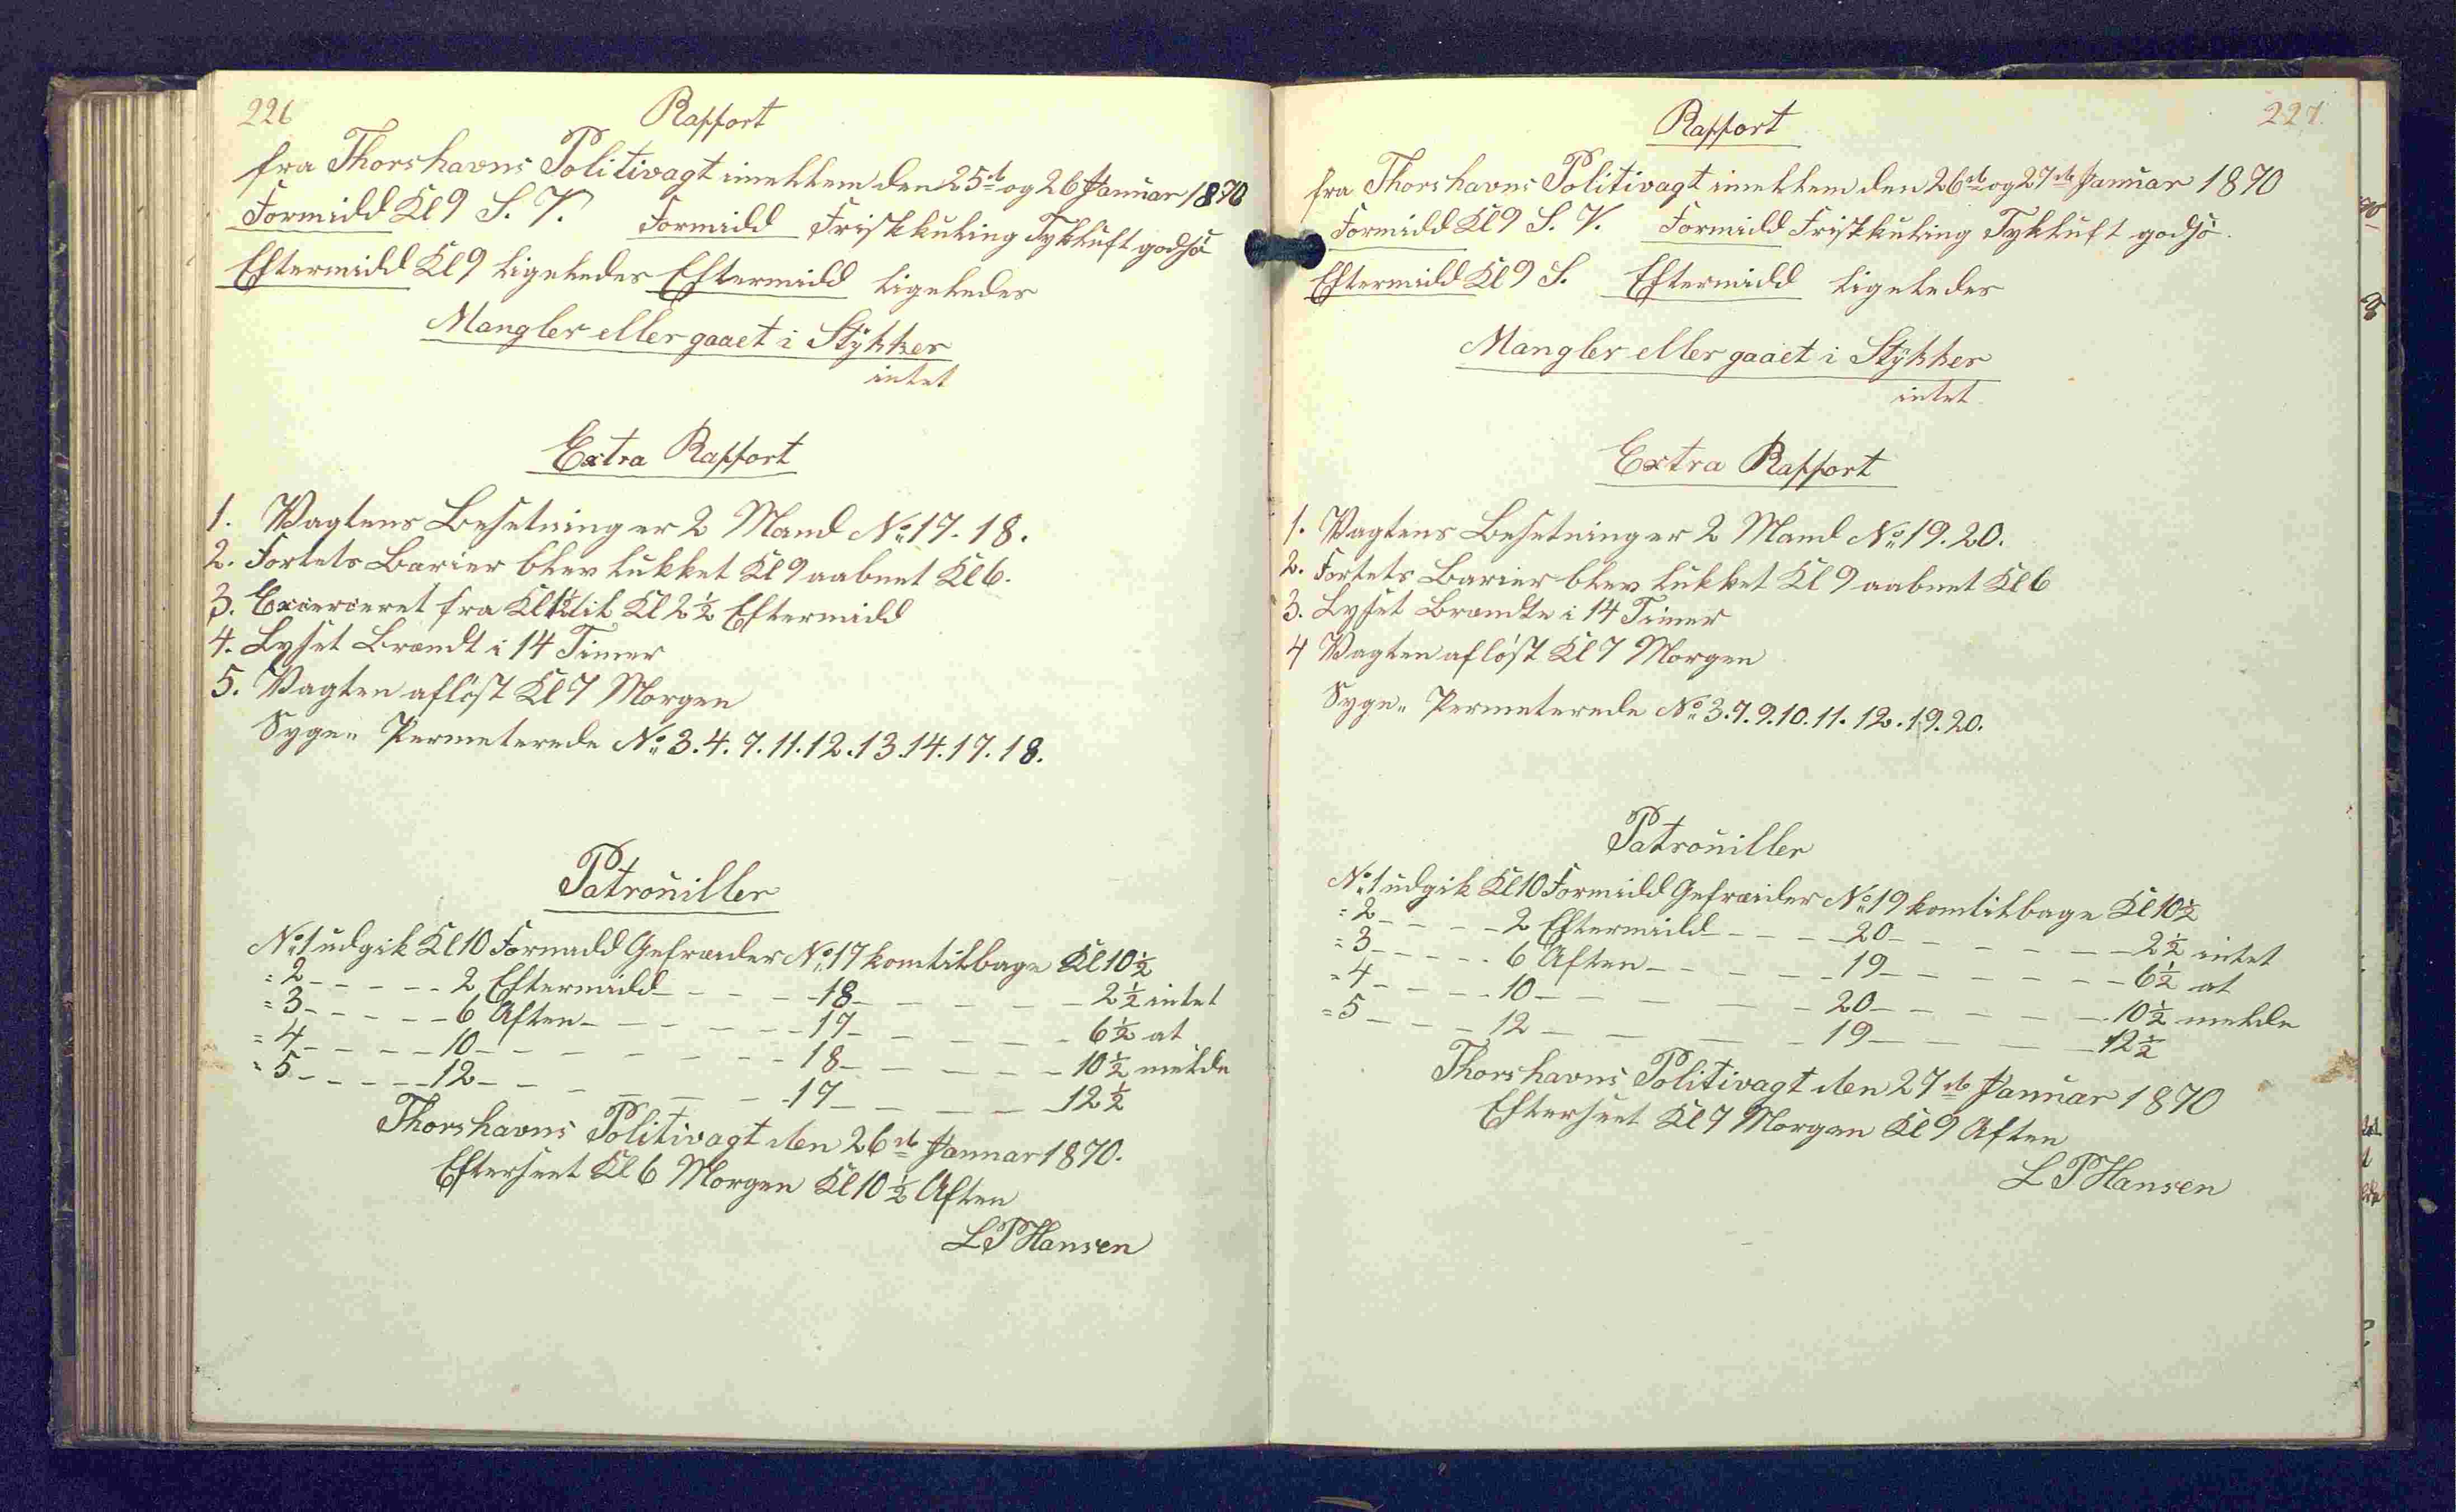 226
Rapport
fra Thorshavns Politivagt imellem den 25de og 26 Januar 1870
Formidd Kl 9 S. V. Formidd Friskkuling Tykluft godsö
Eftermidd Kl 9 ligeledes Eftermidd ligeledes
Mangler eller gaaet i Stykker
intet
Extra Rapport
1. Vagtens Besetning er 2 Mand No 17. 18.
2. Fortets Barier blev lukket Kl 9 aabnet Kl 6.
3. Excerceret fra Kl 1½ til Kl 2½ Eftermidd
4. Lyset Brændt i 14 Timer
5. Vagten aflöst Kl 7 Morgen
Syge " Permeterede No 3. 4. 7. 11. 12. 13. 14. 17. 18.
Patrouiller
No 1 udgik Kl 10 Formadd Gefraider No 17 kom tilbage Kl 10½
= 2 - - - - - 2 Eftermidd - - - - 18 - - - - - 2½ intet
= 3 - - - - - 6 Aften - - - - - - 17 - - - - - 6½ at
= 4 - - - - - 10 - - - - - - - - 18 - - - - - 10½ melde
= 5 - - - - - 12 - - - - - - - - 17 - - - - - 12½
Thorshavns Politivagt den 26de Januar 1870.
Efterseet Kl 6 Morgen Kl 10½ Aften
L P Hansen
227.
Rapport
fra Thorshavns Politivagt imellem den 26de og 27de Januar 1870
Formidd Kl 9 S. V. Formidd Friskkuling Tykluft godsö.
Eftermidd Kl 9 S. Eftermidd ligeledes
Mangler eller gaaet i Stykker
intet.
Extra Rapport
1. Vagtens Besetning er 2 Mand No 19. 20.
2. Fortets Barier blev lukket Kl 9 aabnet Kl 6
3. Lyset Brændte i 14 Timer
4 Vagten aflöst Kl 7 Morgen
Syge " Permeterede No 3. 7. 9. 10. 11. 12. 19. 20.
Patrouiller
No 1 udgik Kl 10 Formidd Gefraider No 19 kom tilbage Kl 10½
= 2 - - - - - 2 Eftermidd - - - - 20 - - - - - 2½ intet
= 3 - - - - - 6 Aften - - - - - - 19 - - - - - 6½ at
= 4 - - - - - 10 - - - - - - - - 20 - - - - - 10½ melde
= 5 - - - - - 12 - - - - - - - - 19 - - - - - 12½
Thorshavns Politivagt den 27de Januar 1870
Efterseet Kl 7 Morgen Kl 9 Aften
L P Hansen